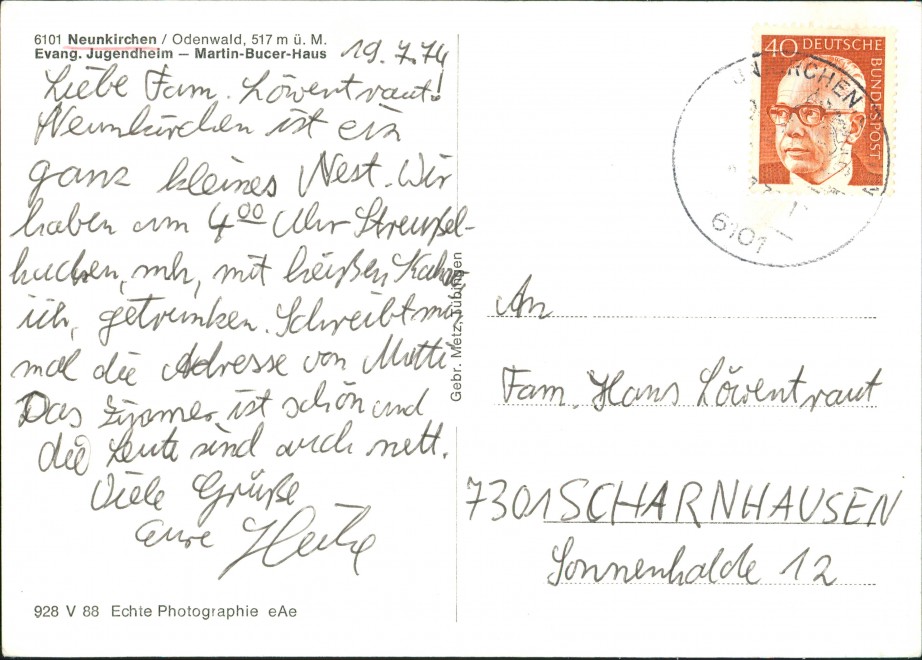 6101 Neunkirchen / Odenwald, 517 m ü. M.
Evang. Jugendheim – Martin-Bucer-Haus
19.7.74
Liebe Fam. Löwentraut!
Neunkirchen ist ein
ganz kleines Nest. Wir
haben um 4⁰⁰ Uhr Streußel-
kuchen, mh, mit heißen Kakao,
iih, getrunken. Schreibt mir
mal die Adresse von Mutti
Das Zimmer ist schön und
die Leute sind auch nett.
Viele Grüße
eure Heike
928 V 88 Echte Photographie eAe
Gebr. Metz, Tübingen
40 DEUTSCHE
BUNDESPOST
6101
An
Fam. Hans Löwentraut
7301 SCHARNHAUSEN
Sonnenhalde 12